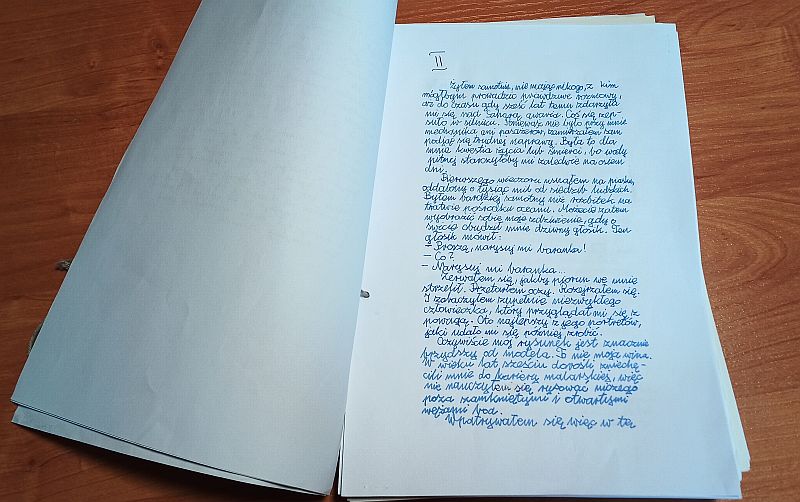 II
Żyłem samotnie, nie mając nikogo, z kim
mógłbym prowadzić prawdziwe rozmowy,
aż do czasu gdy sześć lat temu zdarzyła
mi się nad Saharą awaria. Coś się zep-
suło w silniku. Ponieważ nie było przy mnie
mechanika ani pasażerów, zamierzałem sam
podjąć się trudnej naprawy. Była to dla
mnie kwestia życia lub śmierci, bo wody
pitnej starczyłoby mi zaledwie na osiem
dni.
Pierwszego wieczoru usnąłem na piasku,
oddalony o tysiąc mil od siedzib ludzkich.
Byłem bardziej samotny niż rozbitek na
tratwie pośrodku oceanu. Możecie zatem
wyobrazić sobie moje zdziwienie, gdy o
świcie obudził mnie dziwny głosik. Ten
głosik mówił:
– Proszę, narysuj mi baranka!
– Co?
– Narysuj mi baranka...
Zerwałem się, jakby piorun we mnie
strzelił. Przetarłem oczy. Rozejrzałem się.
I zobaczyłem zupełnie niezwykłego
człowieczka, który przyglądał mi się z
powagą. Oto najlepszy z jego portretów,
jaki udało mi się później zrobić.
Oczywiście mój rysunek jest znacznie
brzydszy od modela. To nie moja wina.
W wieku lat sześciu dorośli zniechę-
cili mnie do kariery malarskiej, więc
nie nauczyłem się rysować niczego
poza zamkniętymi i otwartymi
wężami boa.
Wpatrywałem się więc w tę